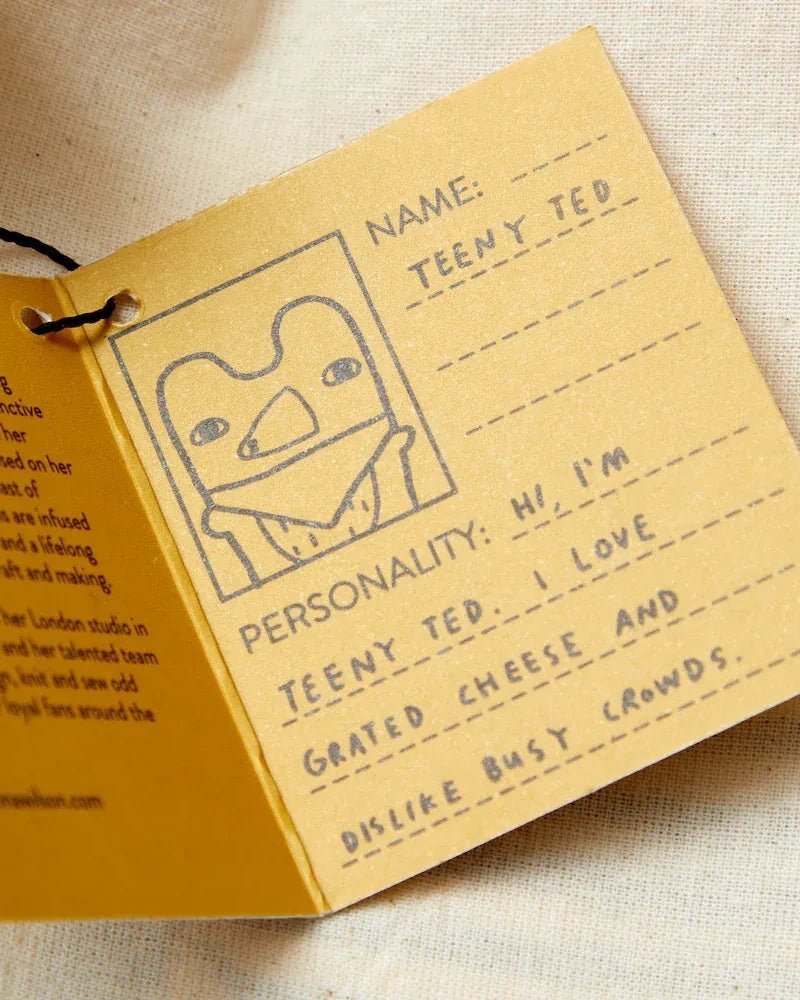 nctive
her
sed on her
ast of
s are infused
and a lifelong
aft and making.
her London studio in
and her talented team
n, knit and sew odd
loyal fans around the
wilson.com
NAME:
TEENY TED
PERSONALITY: HI, I'M
TEENY TED. I LOVE
GRATED CHEESE AND
DISLIKE BUSY CROWDS.